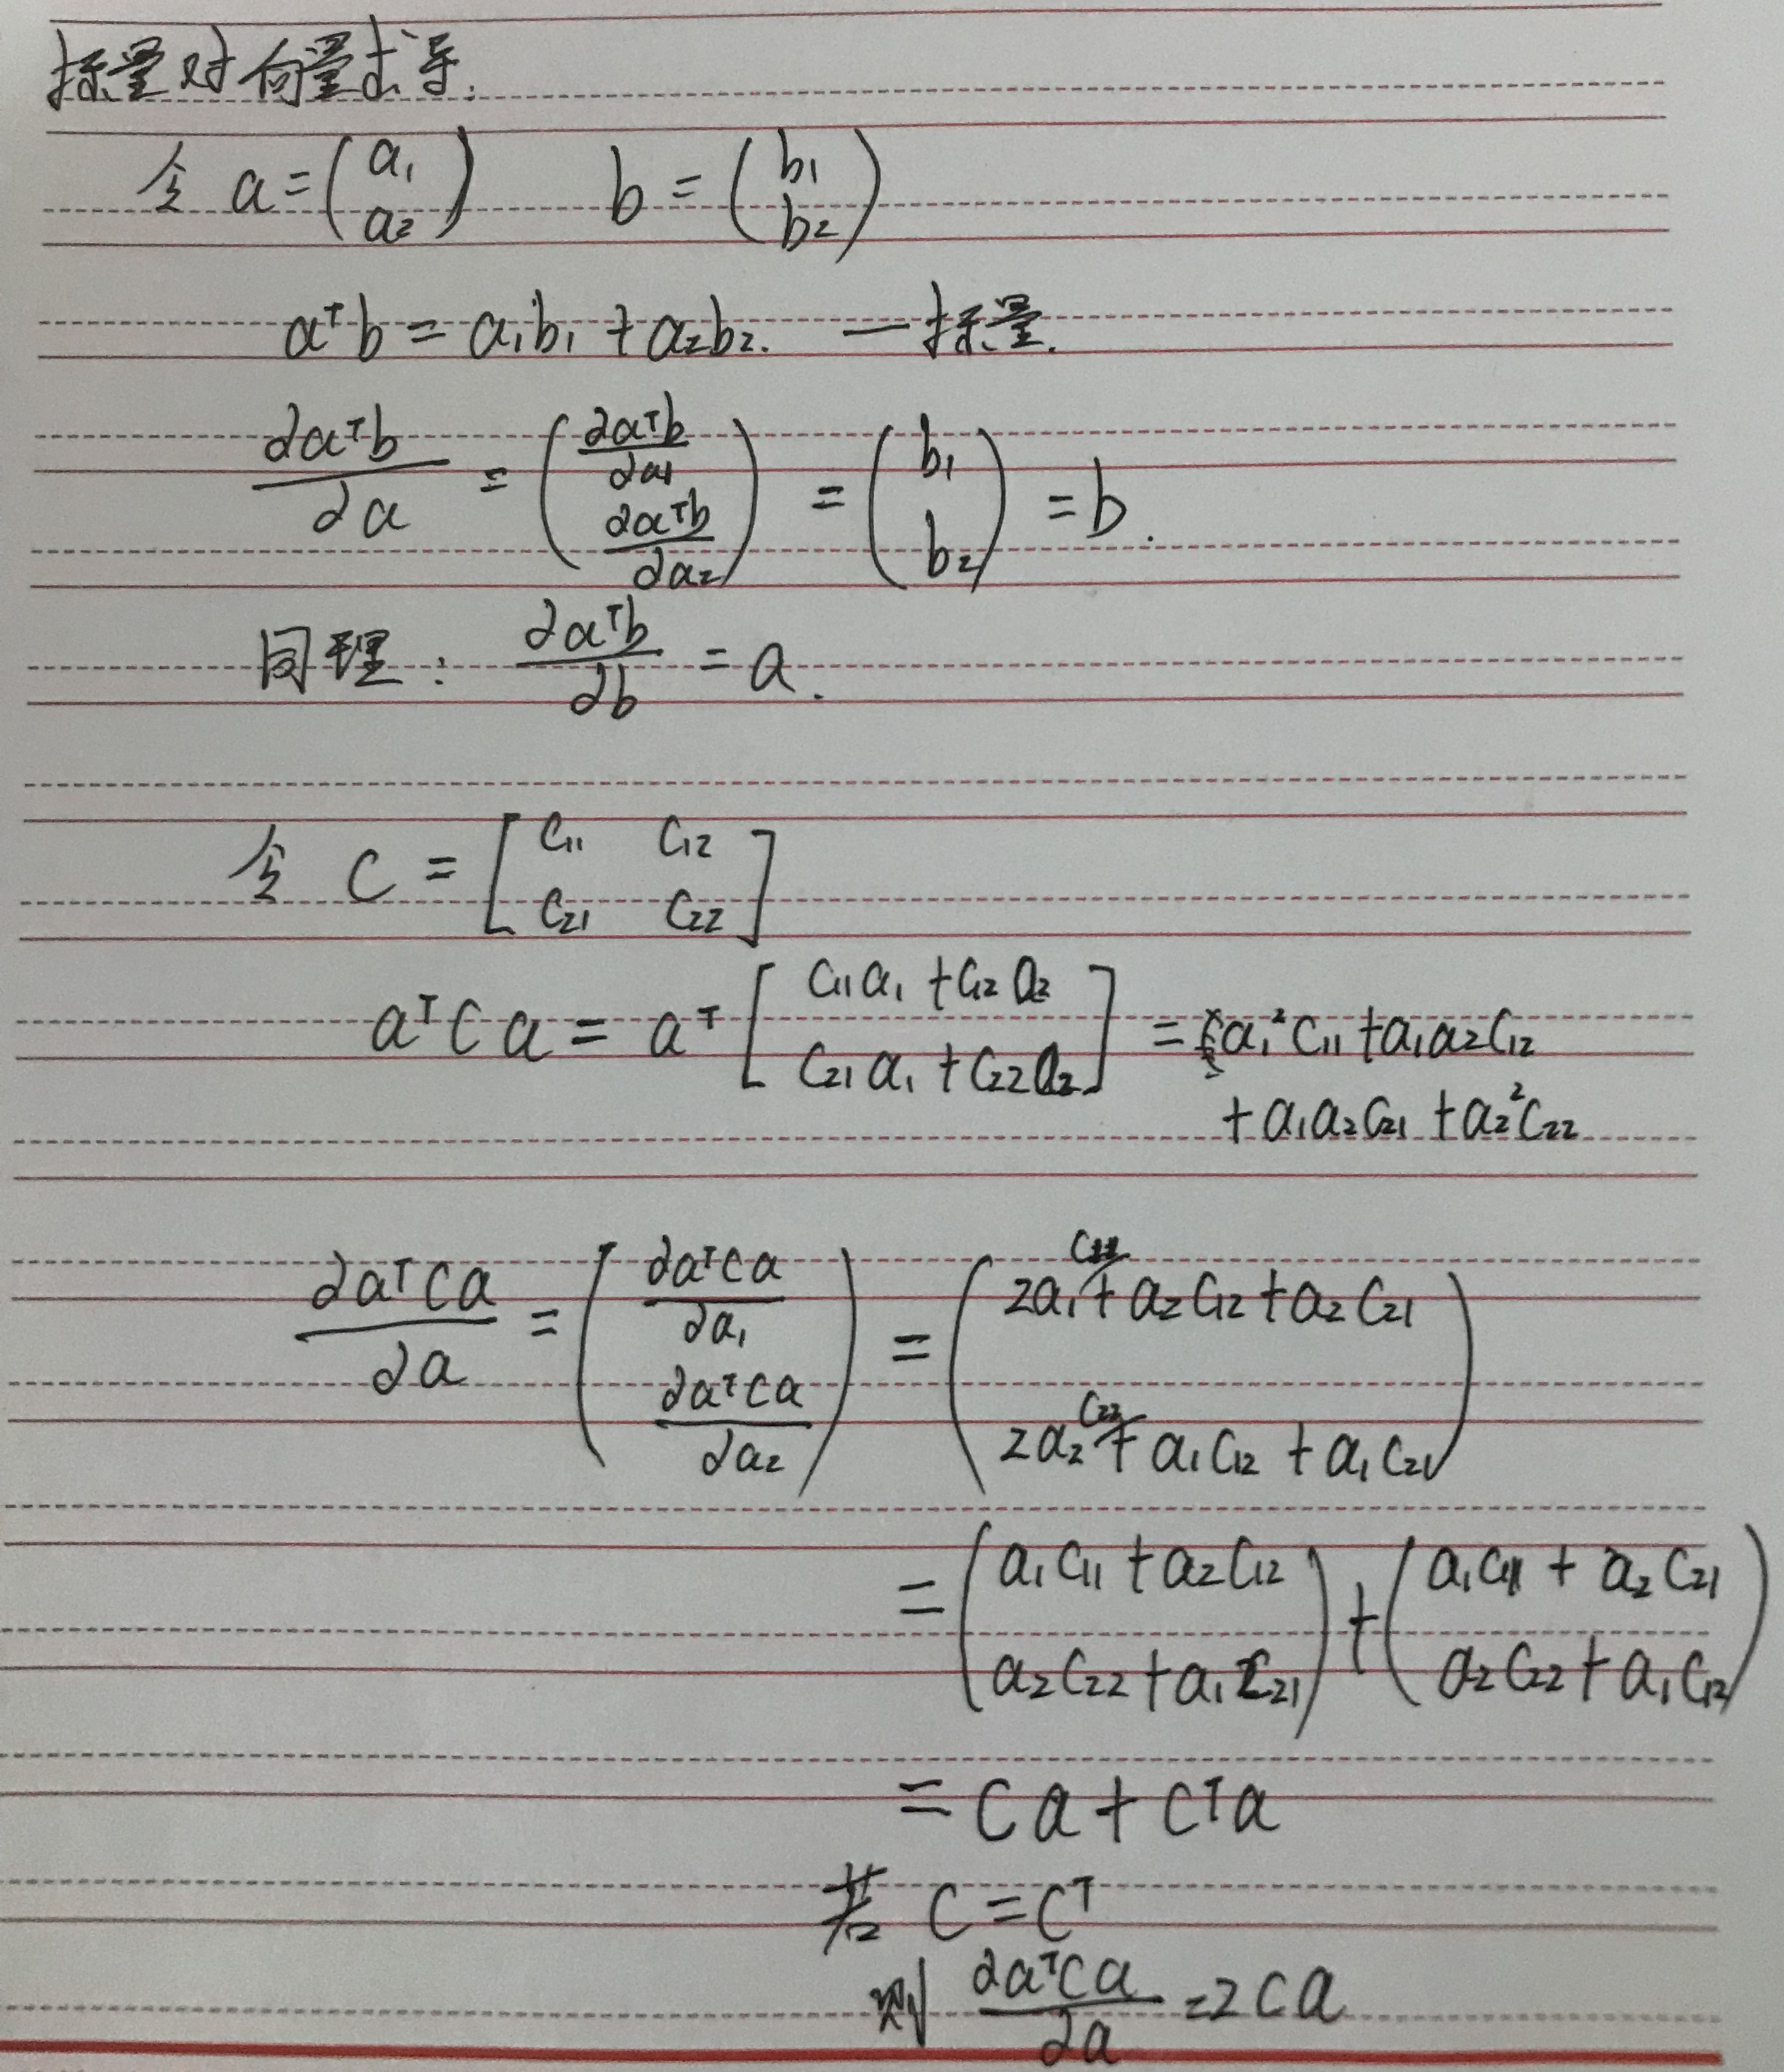 标量对向量求导.
令 a = (a₁ a₂) b = (b₁ b₂)
aᵀb = a₁b₁ + a₂b₂. — 标量.
∂aᵀb/∂a = (∂aᵀb/∂a₁ ∂aᵀb/∂a₂) = (b₁ b₂) = b.
同理: ∂aᵀb/∂b = a.
令 C = [C₁₁ C₁₂ C₂₁ C₂₂]
aᵀCa = aᵀ [C₁₁a₁ + C₁₂a₂ C₂₁a₁ + C₂₂a₂] = a₁²C₁₁ + a₁a₂C₁₂
+ a₁a₂C₂₁ + a₂²C₂₂
∂aᵀCa/∂a = (∂aᵀCa/∂a₁ ∂aᵀCa/∂a₂) = (2a₁C₁₁ + a₂C₁₂ + a₂C₂₁ 2a₂C₂₂ + a₁C₁₂ + a₁C₂₁)
= (a₁C₁₁ + a₂C₁₂ a₂C₂₂ + a₁C₂₁) + (a₁C₁₁ + a₂C₂₁ a₂C₂₂ + a₁C₁₂)
= Ca + Cᵀa
若 C = Cᵀ
则 ∂aᵀCa/∂a = 2Ca